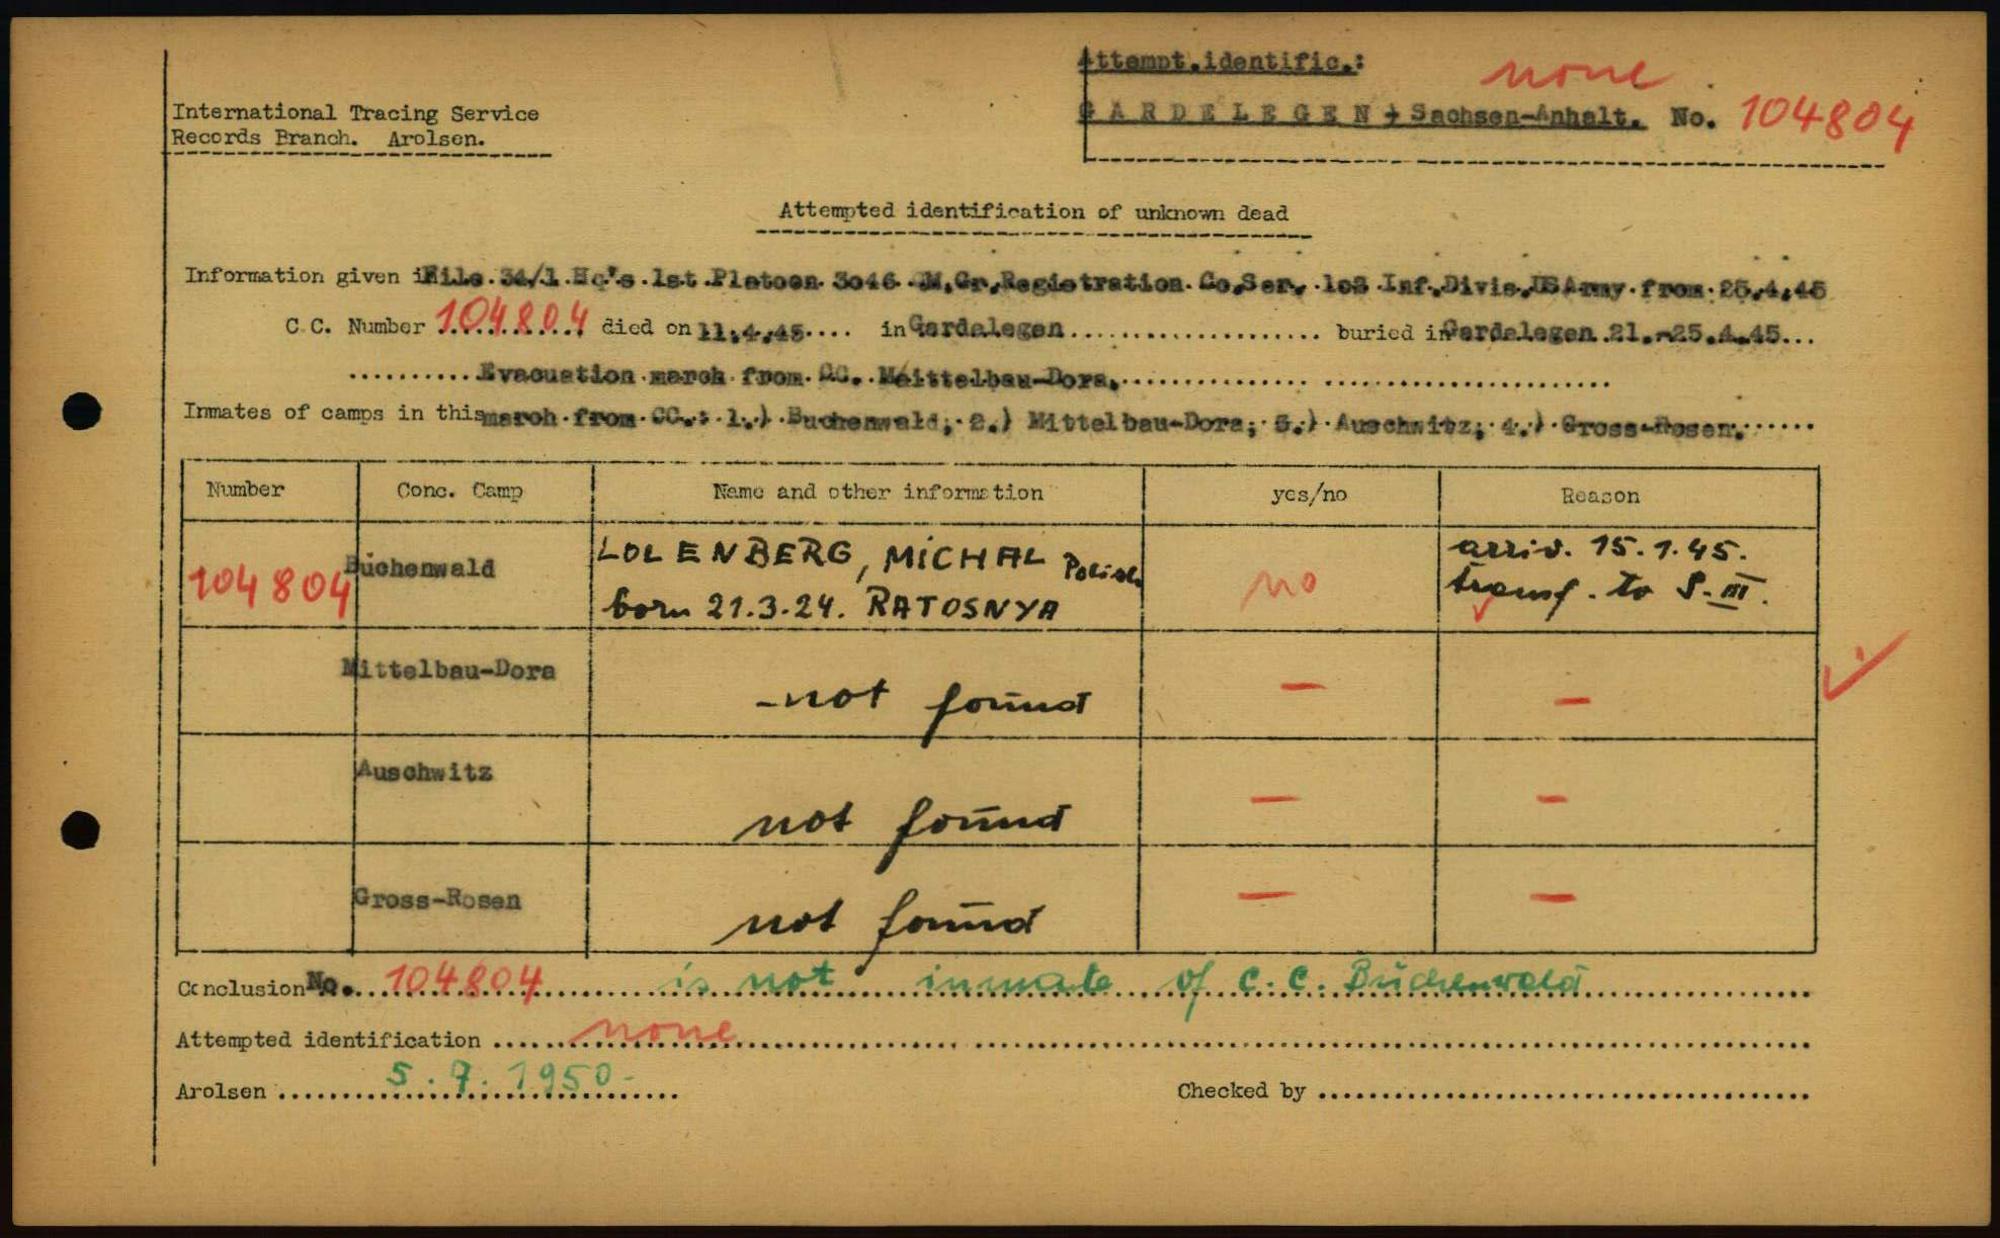 Attempt.identific.: none
International Tracing Service
GARDELEGEN + Sachsen-Anhalt. No. 104804
Records Branch. Arolsen.
Attempted identification of unknown dead
Information given in File 34/1 Hq's 1st Platoon 3046 QM.Gr.Registration Co.Ser. 102 Inf.Divis.USArmy from 25.4.45
C.C. Number 104804 died on 11.4.45.... in Gardelegen.................... buried in Gardelegen 21.-25.4.45...
..........Evacuation march from CC. Meittelbau-Dora...........................
Inmates of camps in this march from CC.: 1.) Buchenwald; 2.) Mittelbau-Dora; 3.) Auschwitz; 4.) Gross-Rosen.......
Number Conc. Camp Name and other information yes/no Reason
104804 Buchenwald LOLENBERG, MICHAL Polish no arriv. 15.1.45.
born 21.3.24. RATOSNYA transf. to S.III.
Mittelbau-Dora - not found — —
Auschwitz not found — —
Gross-Rosen not found — —
Conclusion No. 104804 is not inmate of C.C. Buchenwald
Attempted identification none
Arolsen 5.7.1950-
Checked by